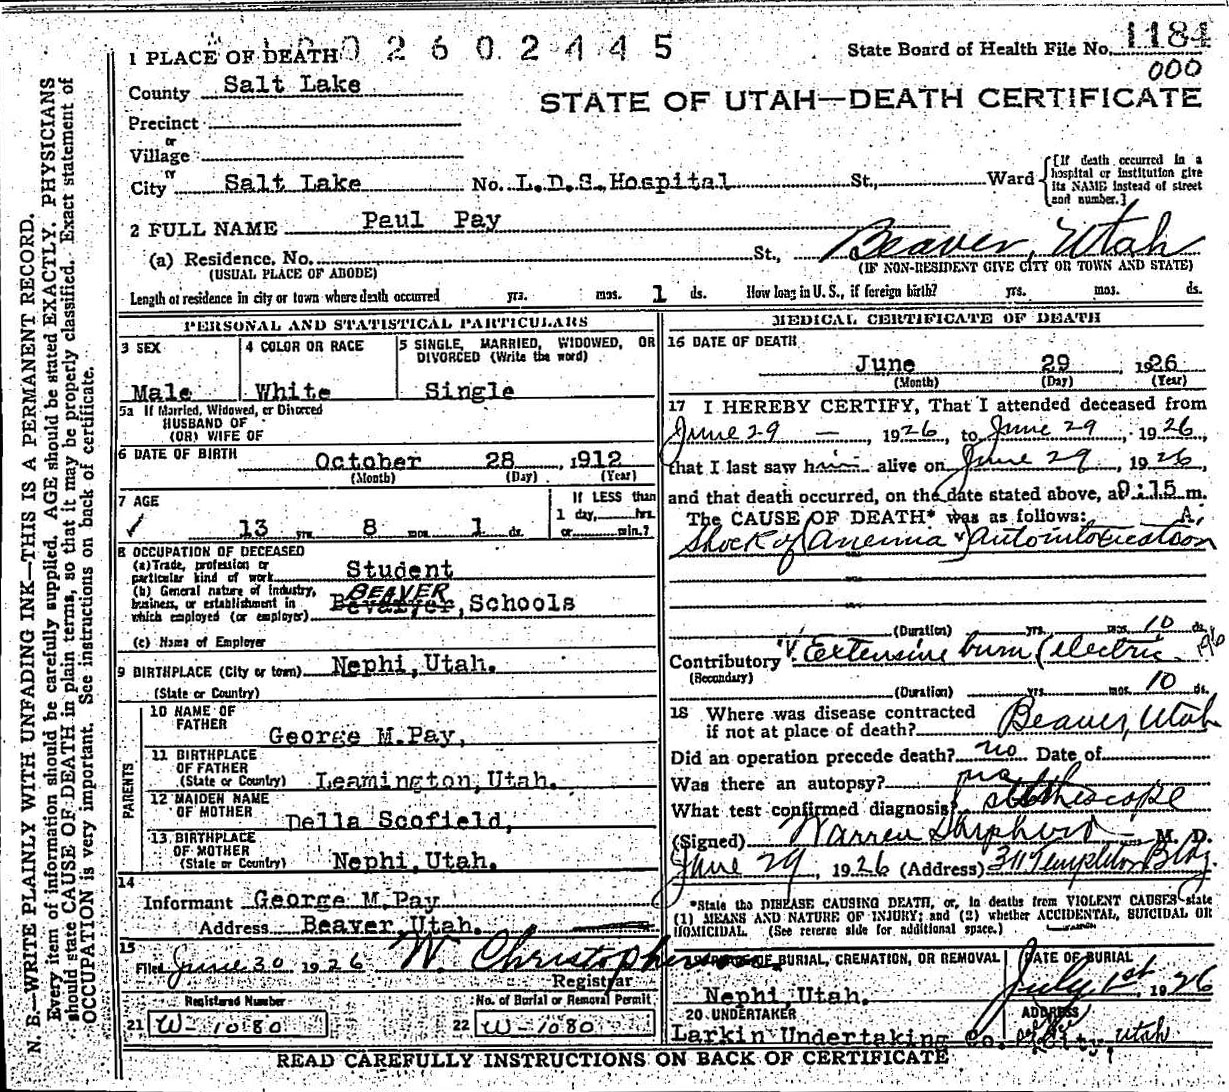 1 PLACE OF DEATH 02602445 State Board of Health File No. 1184
000
County Salt Lake
STATE OF UTAH—DEATH CERTIFICATE
Precinct
or
Village
or
City Salt Lake No. L.D.S. Hospital St., Ward [If death occurred in a hospital or institution give its NAME instead of street and number.]
2 FULL NAME Paul Pay
(a) Residence, No. St., Beaver, Utah
(USUAL PLACE OF ABODE) (IF NON-RESIDENT GIVE CITY OR TOWN AND STATE)
Length of residence in city or town where death occurred yrs. mos. 1 ds. How long in U. S., if foreign birth? yrs. mos. ds.
PERSONAL AND STATISTICAL PARTICULARS
3 SEX 4 COLOR OR RACE 5 SINGLE, MARRIED, WIDOWED, OR DIVORCED (Write the word)
Male White Single
5a If Married, Widowed, or Divorced
HUSBAND OF
(OR) WIFE OF
6 DATE OF BIRTH October 28, 1912
(Month) (Day) (Year)
7 AGE If LESS than
1 day, hrs.
13 yrs. 8 mos. 1 ds. or min.?
8 OCCUPATION OF DECEASED
(a) Trade, profession or
particular kind of work Student
(b) General nature of industry, BEAVER
business, or establishment in
which employed (or employer) Schools
(c) Name of Employer
9 BIRTHPLACE (City or town) Nephi, Utah.
(State or Country)
PARENTS
10 NAME OF
FATHER George M. Pay,
11 BIRTHPLACE
OF FATHER
(State or Country) Leamington, Utah.
12 MAIDEN NAME
OF MOTHER Della Scofield,
13 BIRTHPLACE
OF MOTHER
(State or Country) Nephi, Utah.
14
Informant George M. Pay
Address Beaver, Utah.
15
Filed June 30 1926 W. Christopherson
Registrar
Registered Number No. of Burial or Removal Permit
21 W-1080 22 W-1080
MEDICAL CERTIFICATE OF DEATH
16 DATE OF DEATH
June 29 1926
(Month) (Day) (Year)
17 I HEREBY CERTIFY, That I attended deceased from
June 29 — , 1926, to June 29, 1926,
that I last saw him alive on June 29, 1926,
and that death occurred, on the date stated above, at 9:15 m.
The CAUSE OF DEATH* was as follows: A.
Shock of Anemia & Autointoxication
(Duration) yrs. mos. 10 ds.
Contributory Extensive burn (electric
(Secondary)
(Duration) yrs. mos. 10 ds.
18 Where was disease contracted
if not at place of death? Beaver, Utah
Did an operation precede death? no Date of
Was there an autopsy? no
What test confirmed diagnosis? stethoscope
(Signed) Warren Shepherd M. D.
June 29, 1926 (Address) 311 Templeton Bldg.
*State the DISEASE CAUSING DEATH, or, in deaths from VIOLENT CAUSES state
(1) MEANS AND NATURE OF INJURY; and (2) whether ACCIDENTAL, SUICIDAL OR
HOMICIDAL. (See reverse side for additional space.)
BURIAL, CREMATION, OR REMOVAL DATE OF BURIAL
Nephi, Utah. July 1st 1926
20 UNDERTAKER ADDRESS
Larkin Undertaking Co. City, Utah
READ CAREFULLY INSTRUCTIONS ON BACK OF CERTIFICATE
N. B.—WRITE PLAINLY WITH UNFADING INK—THIS IS A PERMANENT RECORD.
Every item of information should be carefully supplied. AGE should be stated EXACTLY. PHYSICIANS
should state CAUSE OF DEATH in plain terms, so that it may be properly classified. Exact statement of
OCCUPATION is very important. See instructions on back of certificate.